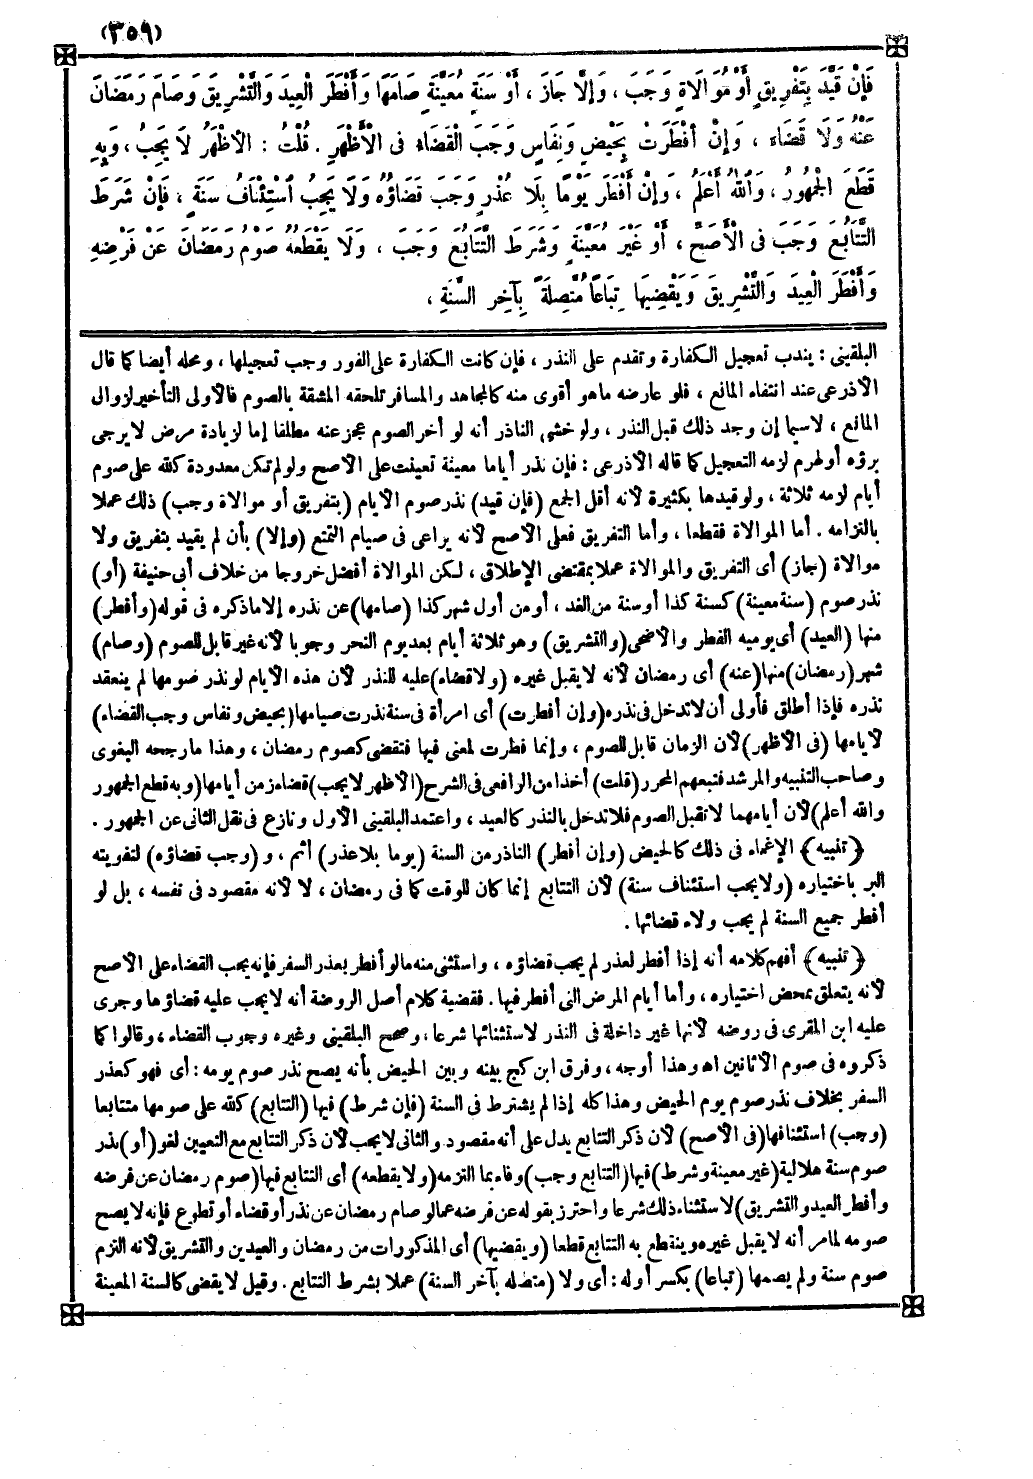 (٣٥٩)
فَإِنْ قَيَّدَ بِتَفْرِيقٍ أَوْ مُوَالَاةٍ وَجَبَ ، وَإِلَّا جَازَ ، أَوْ سَنَةٍ مُعَيَّنَةٍ صَامَهَا وَأَفْطَرَ الْعِيدَ وَالتَّشْرِيقَ وَصَامَ رَمَضَانَ
عَنْهُ وَلَا قَضَاءَ ، وَإِنْ أَفْطَرَتْ بِحَيْضٍ وَنِفَاسٍ وَجَبَ الْقَضَاءُ فِى الْأَظْهَرِ . قُلْتُ : الْأَظْهَرُ لَا يَجِبُ ، وَبِهِ
قَطَعَ الْجُمْهُورُ ، وَاللهُ أَعْلَمُ ، وَإِنْ أَفْطَرَ يَوْمًا بِلَا عُذْرٍ وَجَبَ قَضَاؤُهُ وَلَا يَجِبُ اسْتِئْنَافُ سَنَةٍ ، فَإِنْ شَرَطَ
التَّتَابُعَ وَجَبَ فِى الْأَصَحِّ ، أَوْ غَيْرَ مُعَيَّنَةٍ وَشَرَطَ التَّتَابُعَ وَجَبَ ، وَلَا يَقْطَعُهُ صَوْمُ رَمَضَانَ عَنْ فَرْضِهِ
وَأَفْطَرَ الْعِيدَ وَالتَّشْرِيقَ وَيَقْضِيهَا تِبَاعًا مُتَّصِلَةً بِآخِرِ السَّنَةِ ،
البلقينى : يندب تعجيل الكفارة وتقدم على النذر ، فإن كانت الكفارة على الفور وجب تعجيلها ، ومحله أيضا كما قال
الأذرعى عند انتفاء المانع ، فلو عارضه ماهو أقوى منه كالمجاهد والمسافر تلحقه المشقة بالصوم فالأولى التأخير لزوال
المانع ، لاسيما إن وجد ذلك قبل النذر ، ولو خشى الناذر أنه لو أخر الصوم عجز عنه مطلقا إما لزيادة مرض لايرجى
برؤه أو لهرم لزمه التعجيل كما قاله الأذرعى : فإن نذر أياما معينة تعينت على الأصح ولو لم تكن معدودة كلله على صوم
أيام لزمه ثلاثة ، ولو قيدها بكثيرة لأنه أقل الجمع (فإن قيد) نذر صوم الأيام (بتفريق أو موالاة وجب) ذلك عملا
بالتزامه . أما الموالاة فقطعا ، وأما التفريق فعلى الأصح لأنه يراعى فى صيام التمتع (وإلا) بأن لم يقيد بتفريق ولا
موالاة (جاز) أى التفريق والموالاة عملا بمقتضى الإطلاق ، لكن الموالاة أفضل خروجا من خلاف أبى حنيفة (أو)
نذر صوم (سنة معينة) كسنة كذا أو سنة من الغد ، أو من أول شهر كذا (صامها) عن نذره إلا ماذكره فى قوله (وأفطر)
منها (العيد) أى يوميه الفطر والأضحى (والتشريق) وهو ثلاثة أيام بعد يوم النحر وجوبا لأنه غير قابل للصوم (وصام)
شهر (رمضان) منها (عنه) أى رمضان لأنه لايقبل غيره (ولاقضاء) عليه للنذر لأن هذه الأيام لو نذر صومها لم ينعقد
نذره فإذا أطلق فأولى أن لاتدخل فى نذره (وإن أفطرت) أى امرأة فى سنة نذرت صيامها (بحيض ونفاس وجب القضاء)
لأيامها (فى الأظهر) لأن الزمان قابل للصوم ، وإنما فطرت لمعنى فيها فتقضى كصوم رمضان ، وهذا مارجحه البغوى
وصاحب التنبيه والمرشد فتبعهم المحرر (قلت) أخذا من الرافعى فى الشرح (الأظهر لايجب) قضاء زمن أيامها (وبه قطع الجمهور
والله أعلم) لأن أيامهما لاتقبل الصوم فلا تدخل بالنذر كالعيد ، واعتمد البلقينى الأول ونازع فى نقل الثانى عن الجمهور .
﴿تنبيه﴾ الإغماء فى ذلك كالحيض (وإن أفطر) الناذر من السنة (يوما بلاعذر) أثم ، و(وجب قضاؤه) لتفويته
البر باختياره (ولايجب استئناف سنة) لأن التتابع إنما كان للوقت كما فى رمضان ، لا لأنه مقصود فى نفسه ، بل لو
أفطر جميع السنة لم يجب ولاء قضائها .
﴿تنبيه﴾ أفهم كلامه أنه إذا أفطر لعذر لم يجب قضاؤه ، واستثنى منه مالو أفطر بعذر السفر فإنه يجب القضاء على الأصح
لأنه يتعلق بمحض اختياره ، وأما أيام المرض التى أفطر فيها . فقضية كلام أصل الروضة أنه لايجب عليه قضاؤها وجرى
عليه ابن المقرى فى روضه لأنها غير داخلة فى النذر لاستثنائها شرعا ، وصحح البلقينى وغيره وجوب القضاء ، وقالوا كما
ذكروه فى صوم الأثانين اه وهذا أوجه ، وفرق ابن كج بينه وبين الحيض بأنه يصح نذر صوم يومه : أى فهو كعذر
السفر بخلاف نذر صوم يوم الحيض وهذا كله إذا لم يشترط فى السنة (فإن شرط) فيها (التتابع) كلله على صومها متتابعا
(وجب) استئنافها (فى الأصح) لأن ذكر التتابع يدل على أنه مقصود . والثانى لايجب لأن ذكر التتابع مع التعيين لغو (أو) نذر
صوم سنة هلالية (غير معينة وشرط) فيها (التتابع وجب) وفاء بما التزمه (ولايقطعه) أى التتابع فيها (صوم رمضان عن فرضه
وأفطر العيد والتشريق) لاستثناء ذلك شرعا واحترز بقوله عن فرضه عما لو صام رمضان عن نذر أو قضاء أو تطوع فإنه لايصح
صومه لما مر أنه لايقبل غيره وينقطع به التتابع قطعا (ويقضيها) أى المذكورات من رمضان والعيدين والتشريق لأنه التزم
صوم سنة ولم يصمها (تباعا) بكسر أوله : أى ولا (متصلة بآخر السنة) عملا بشرط التتابع . وقيل لايقضى كالسنة المعينة